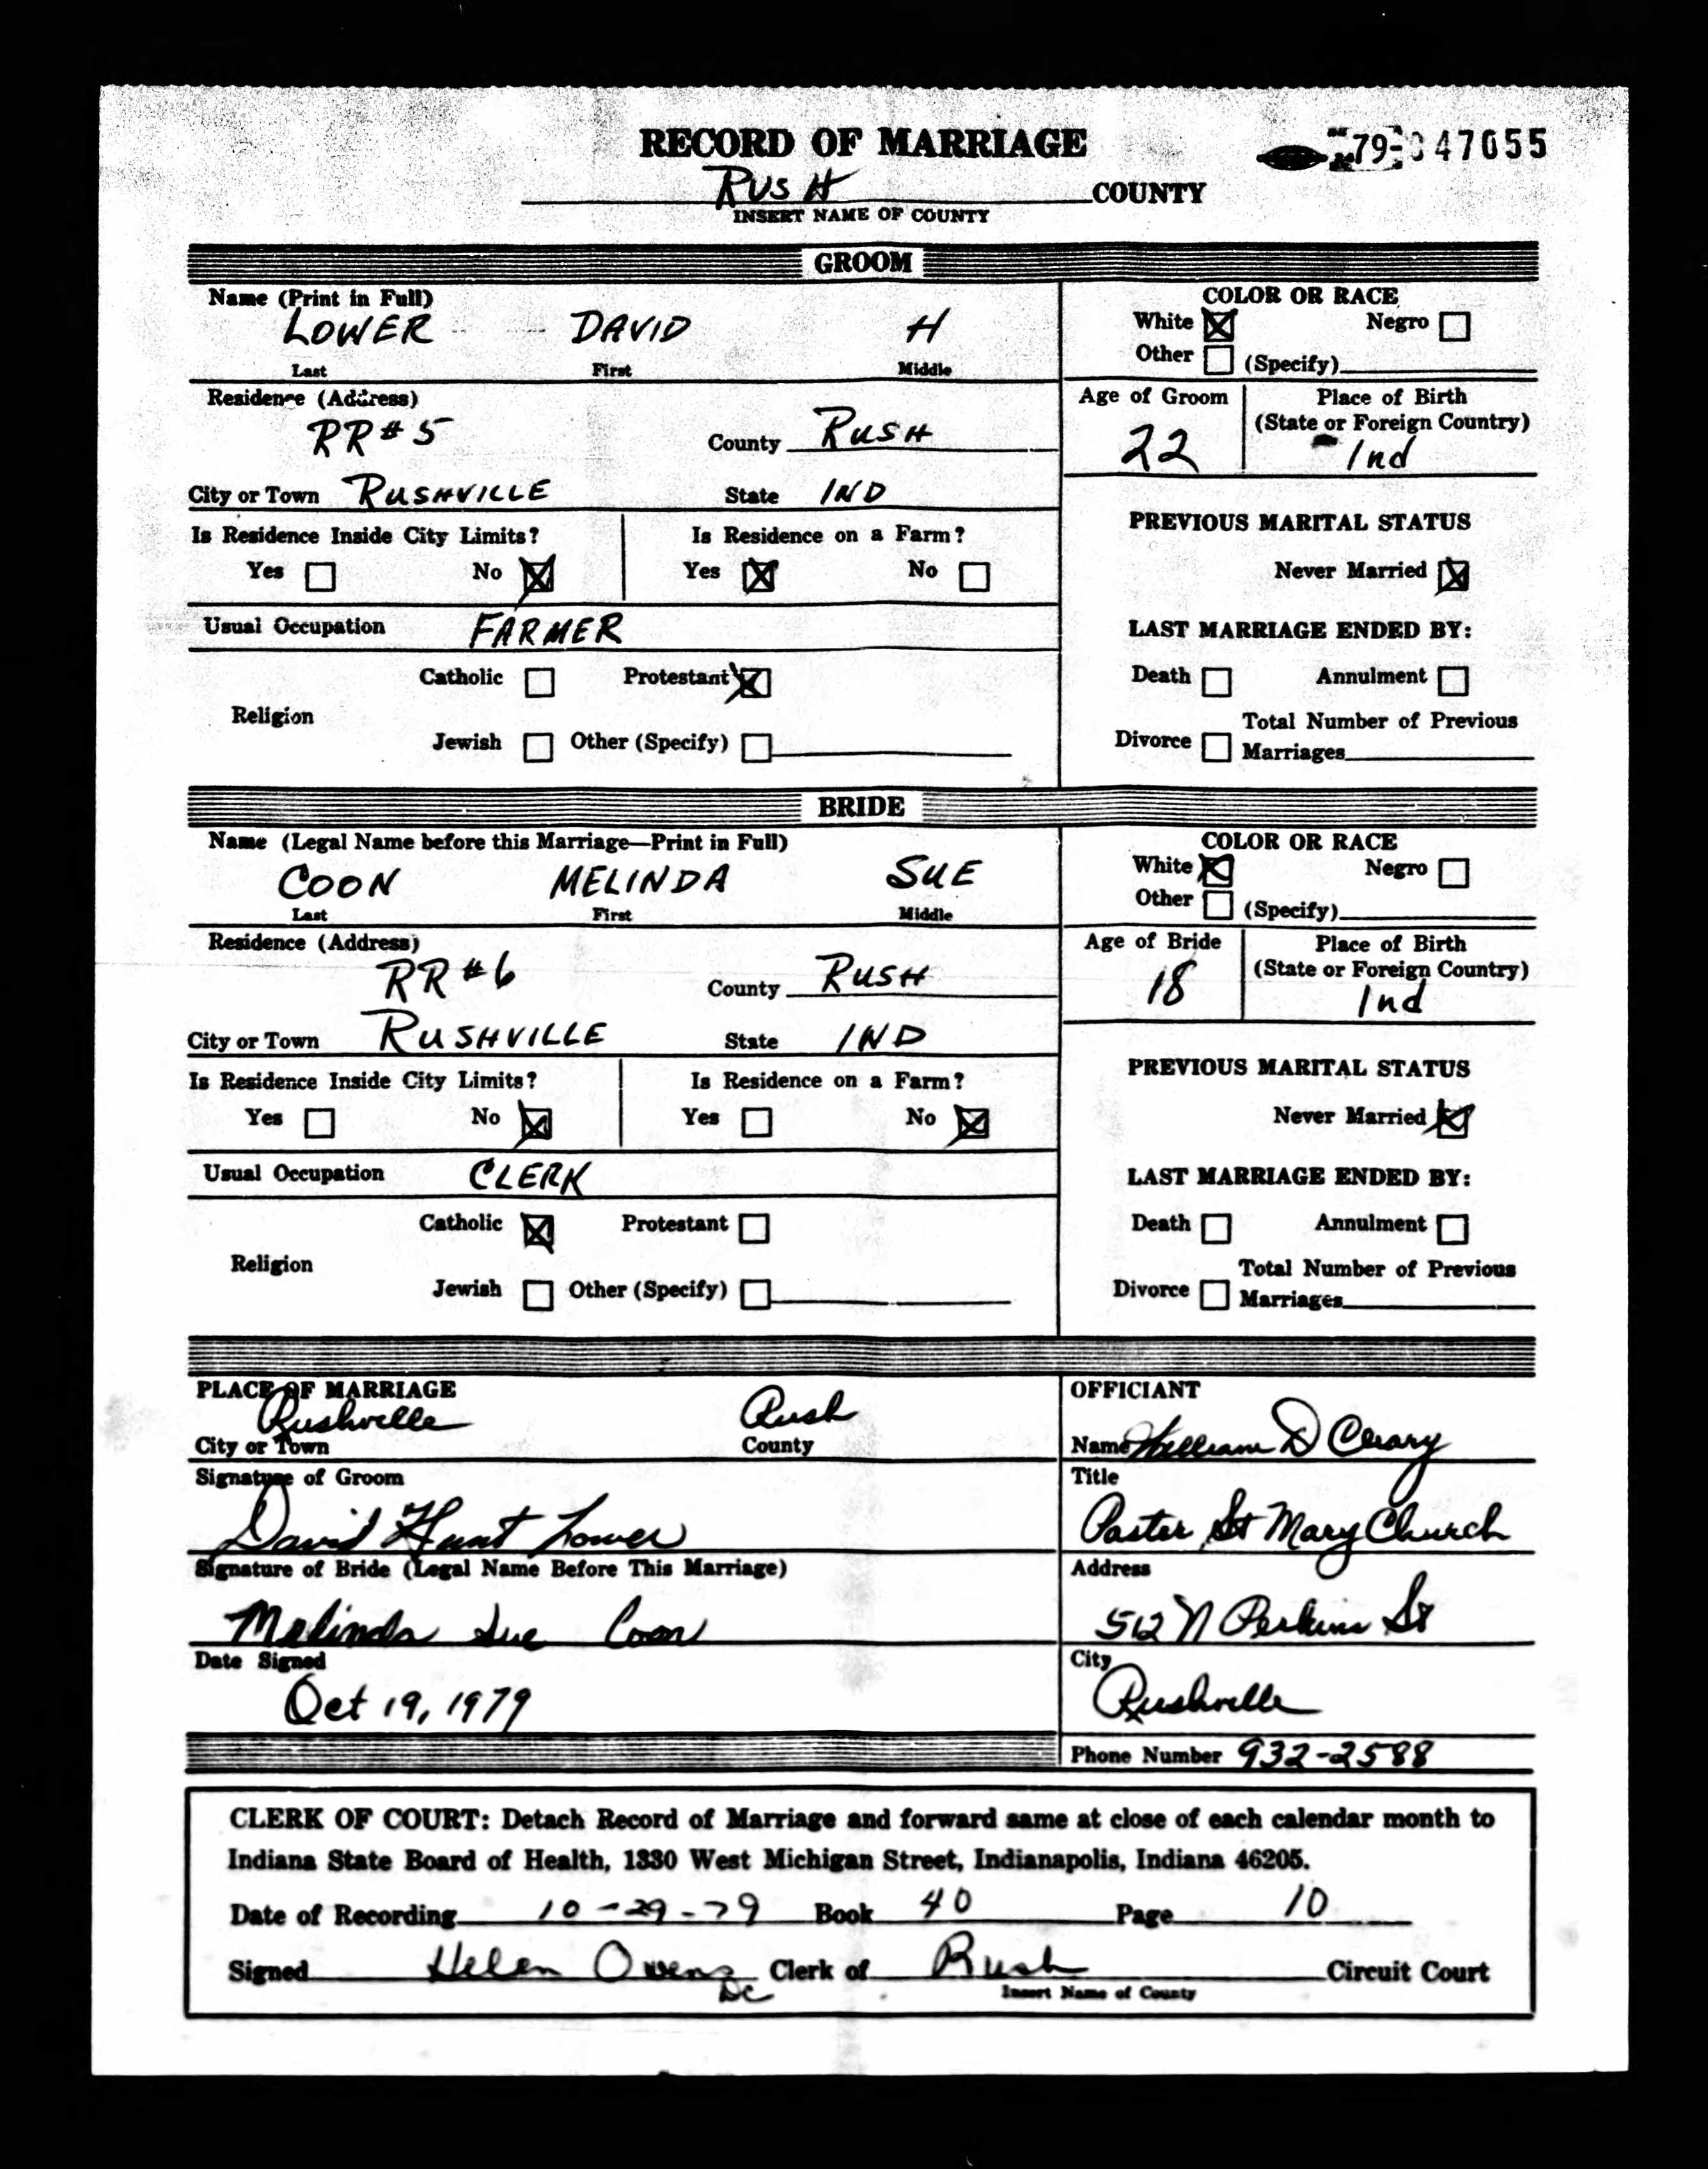 RECORD OF MARRIAGE
79- 047055
RUSH COUNTY
INSERT NAME OF COUNTY
GROOM
Name (Print in Full)
LOWER DAVID H
Last First Middle
COLOR OR RACE
White ☒ Negro ☐
Other ☐ (Specify)
Residence (Address)
RR#5 County RUSH
City or Town RUSHVILLE State IND
Age of Groom
22
Place of Birth
(State or Foreign Country)
Ind
Is Residence Inside City Limits?
Yes ☐ No ☒
Is Residence on a Farm?
Yes ☒ No ☐
PREVIOUS MARITAL STATUS
Never Married ☒
Usual Occupation FARMER
LAST MARRIAGE ENDED BY:
Catholic ☐ Protestant ☒
Religion
Jewish ☐ Other (Specify) ☐
Death ☐ Annulment ☐
Total Number of Previous
Divorce ☐ Marriages
BRIDE
Name (Legal Name before this Marriage—Print in Full)
COON MELINDA SUE
Last First Middle
COLOR OR RACE
White ☒ Negro ☐
Other ☐ (Specify)
Residence (Address)
RR#6 County RUSH
City or Town RUSHVILLE State IND
Age of Bride
18
Place of Birth
(State or Foreign Country)
Ind
Is Residence Inside City Limits?
Yes ☐ No ☒
Is Residence on a Farm?
Yes ☐ No ☒
PREVIOUS MARITAL STATUS
Never Married ☒
Usual Occupation CLERK
LAST MARRIAGE ENDED BY:
Catholic ☒ Protestant ☐
Religion
Jewish ☐ Other (Specify) ☐
Death ☐ Annulment ☐
Total Number of Previous
Divorce ☐ Marriages
PLACE OF MARRIAGE
Rushville Rush
City or Town County
Signature of Groom
David Hunt Lower
Signature of Bride (Legal Name Before This Marriage)
Melinda Sue Coon
Date Signed
Oct 19, 1979
OFFICIANT
Name William D Cleary
Title
Paster St Mary Church
Address
512 N Perkins St
City
Rushville
Phone Number 932-2588
CLERK OF COURT: Detach Record of Marriage and forward same at close of each calendar month to
Indiana State Board of Health, 1330 West Michigan Street, Indianapolis, Indiana 46205.
Date of Recording 10-29-79 Book 40 Page 10
Signed Helen Owens DC Clerk of Rush Circuit Court
Insert Name of County